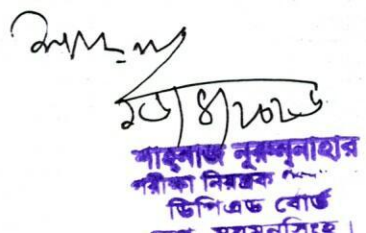 শাহনাজ
শাহনাজ নূরুন্নাহার
পরীক্ষা নিয়ন্ত্রক
ডিপিএড বোর্ড
ময়মনসিংহ।